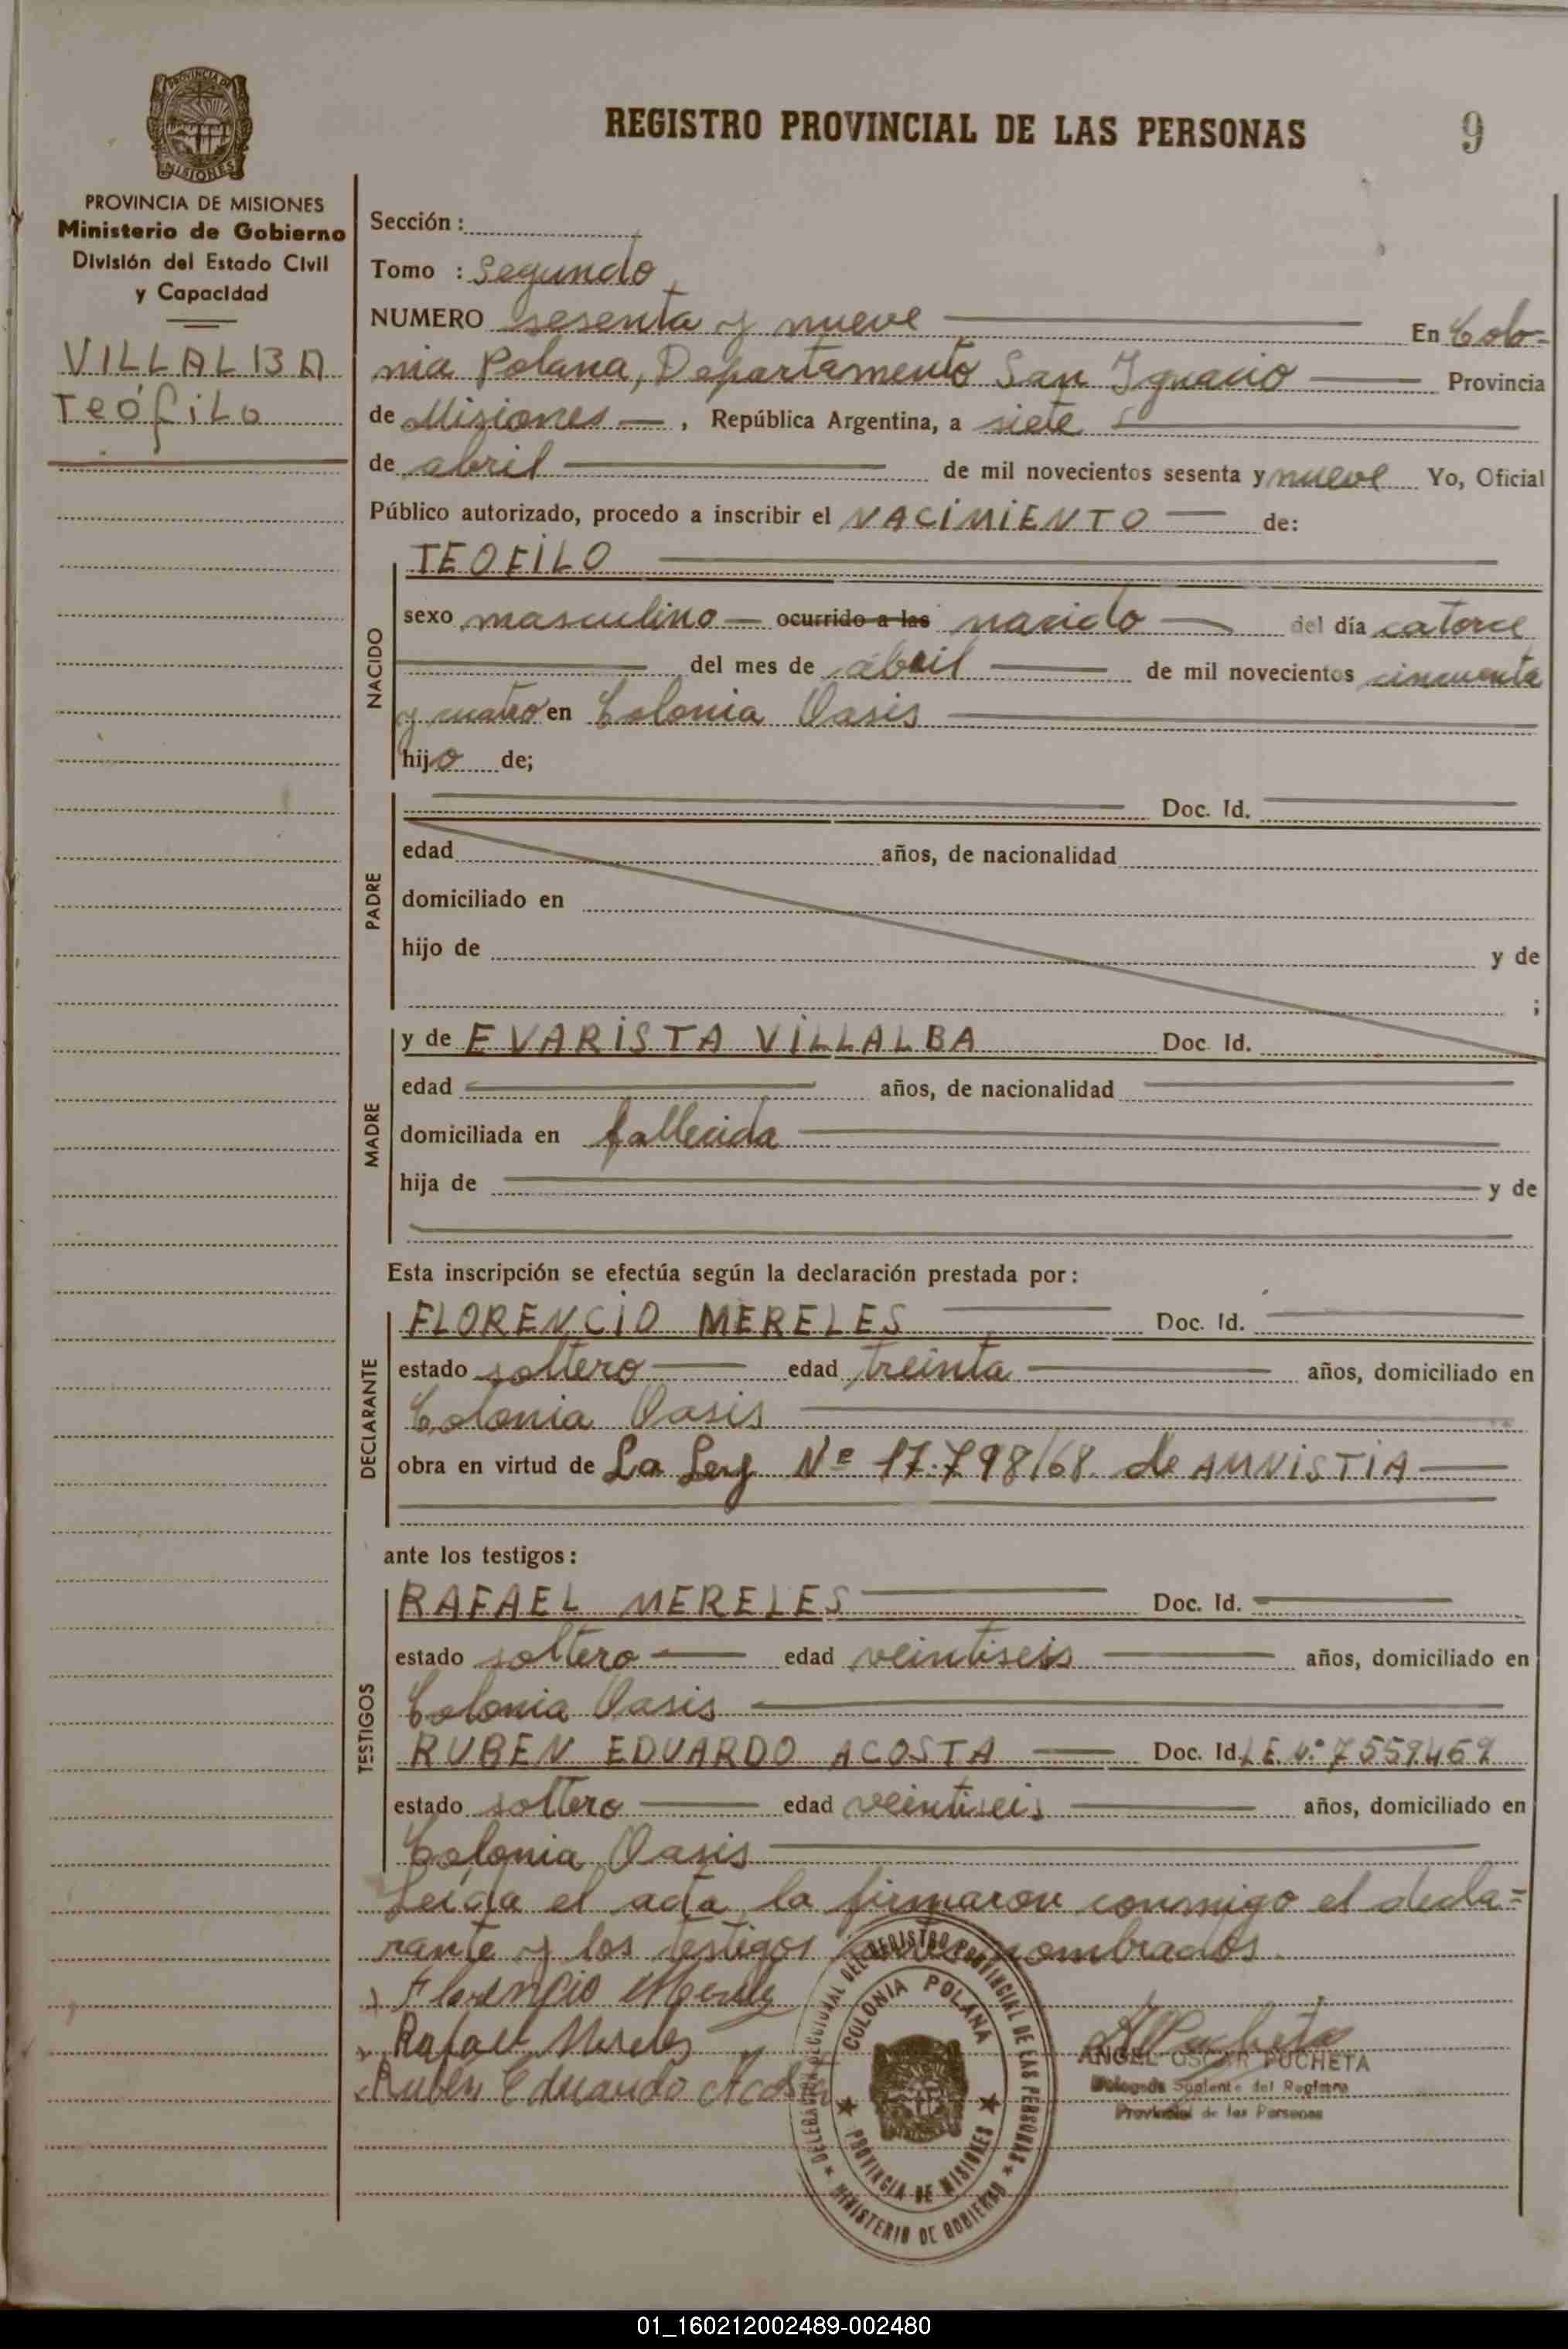 REGISTRO PROVINCIAL DE LAS PERSONAS
9
PROVINCIA DE MISIONES
MISIONES
PROVINCIA DE MISIONES
Ministerio de Gobierno
División del Estado Civil
y Capacidad
VILLALBA
TeófiLo
Sección :
Tomo : Segundo
NUMERO sesenta y nueve En Colo=
nia Polana, Departamento San Ignacio Provincia
de Misiones , República Argentina, a siete
de abril de mil novecientos sesenta y nueve Yo, Oficial
Público autorizado, procedo a inscribir el NACIMIENTO de:
NACIDO
TEOFILO
sexo masculino ocurrido a las nacido del día catorce
del mes de abril de mil novecientos cincuenta
y cuatro en Colonia Oasis
hijo de;
PADRE
Doc. Id.
edad años, de nacionalidad
domiciliado en
hijo de y de
;
MADRE
y de EVARISTA VILLALBA Doc. Id.
edad años, de nacionalidad
domiciliada en fallecida
hija de y de
Esta inscripción se efectúa según la declaración prestada por:
DECLARANTE
FLORENCIO MERELES Doc. Id.
estado soltero edad treinta años, domiciliado en
Colonia Oasis
obra en virtud de La Ley Nº 17.798/68 de AMNISTIA
ante los testigos:
TESTIGOS
RAFAEL MERELES Doc. Id.
estado soltero edad veintiseis años, domiciliado en
Colonia Oasis
RUBEN EDUARDO ACOSTA Doc. Id. L.E. Nº 7559.469
estado soltero edad veintiseis años, domiciliado en
Colonia Oasis
Leida el acta la firmaron conmigo el decla=
rante y los testigos nombrados.
Florencio
Rafael Mereles
Ruben Eduardo Acosta
DEL REGISTRO PROVINCIAL DE LAS PERSONAS
MINISTERIO DE GOBIERNO
COLONIA POLANA
PROVINCIA DE MISIONES
ANGEL OSCAR PUCHETA
Delegado Suplente del Registro
Provincial de las Personas
01_160212002489-002480